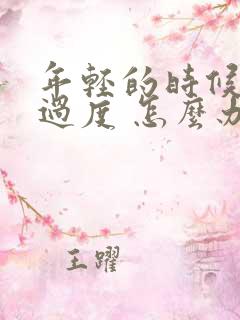 年輕的時候
過度 怎麼办
王躍